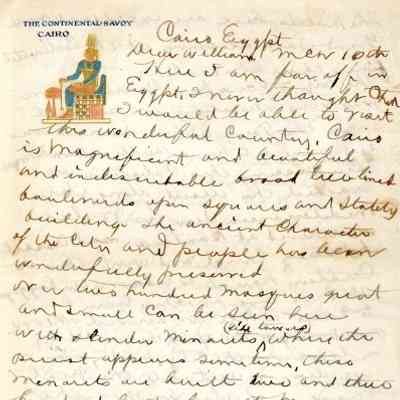 THE CONTINENTAL-SAVOY
CAIRO
Cairo Egypt
Dear William, Mch 10th
Here I am far off in
Egypt, I never thought that
I would be able to visit
this wonderful Country, Cairo
is magnificent and beautiful
and indiscribable broad tree lined
boulevards open squares and stately
buildings the ancient Character
of the City and people has been
wonderfully preserved
over two hundred mosques great
and small can be seen here
with slender Minarets, (like towers) where the
priest appears sometime, these
minarets are built two and three